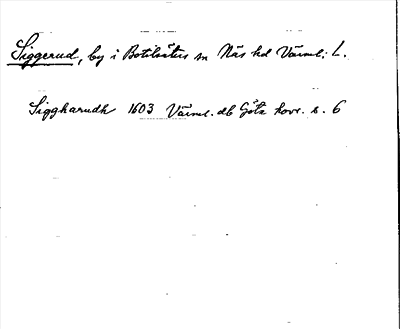 Siggerud, by i Botilsäter sn Näs hd Värml. L.
Siggharudh 1603 Värml. db Göta hovr. s. 6